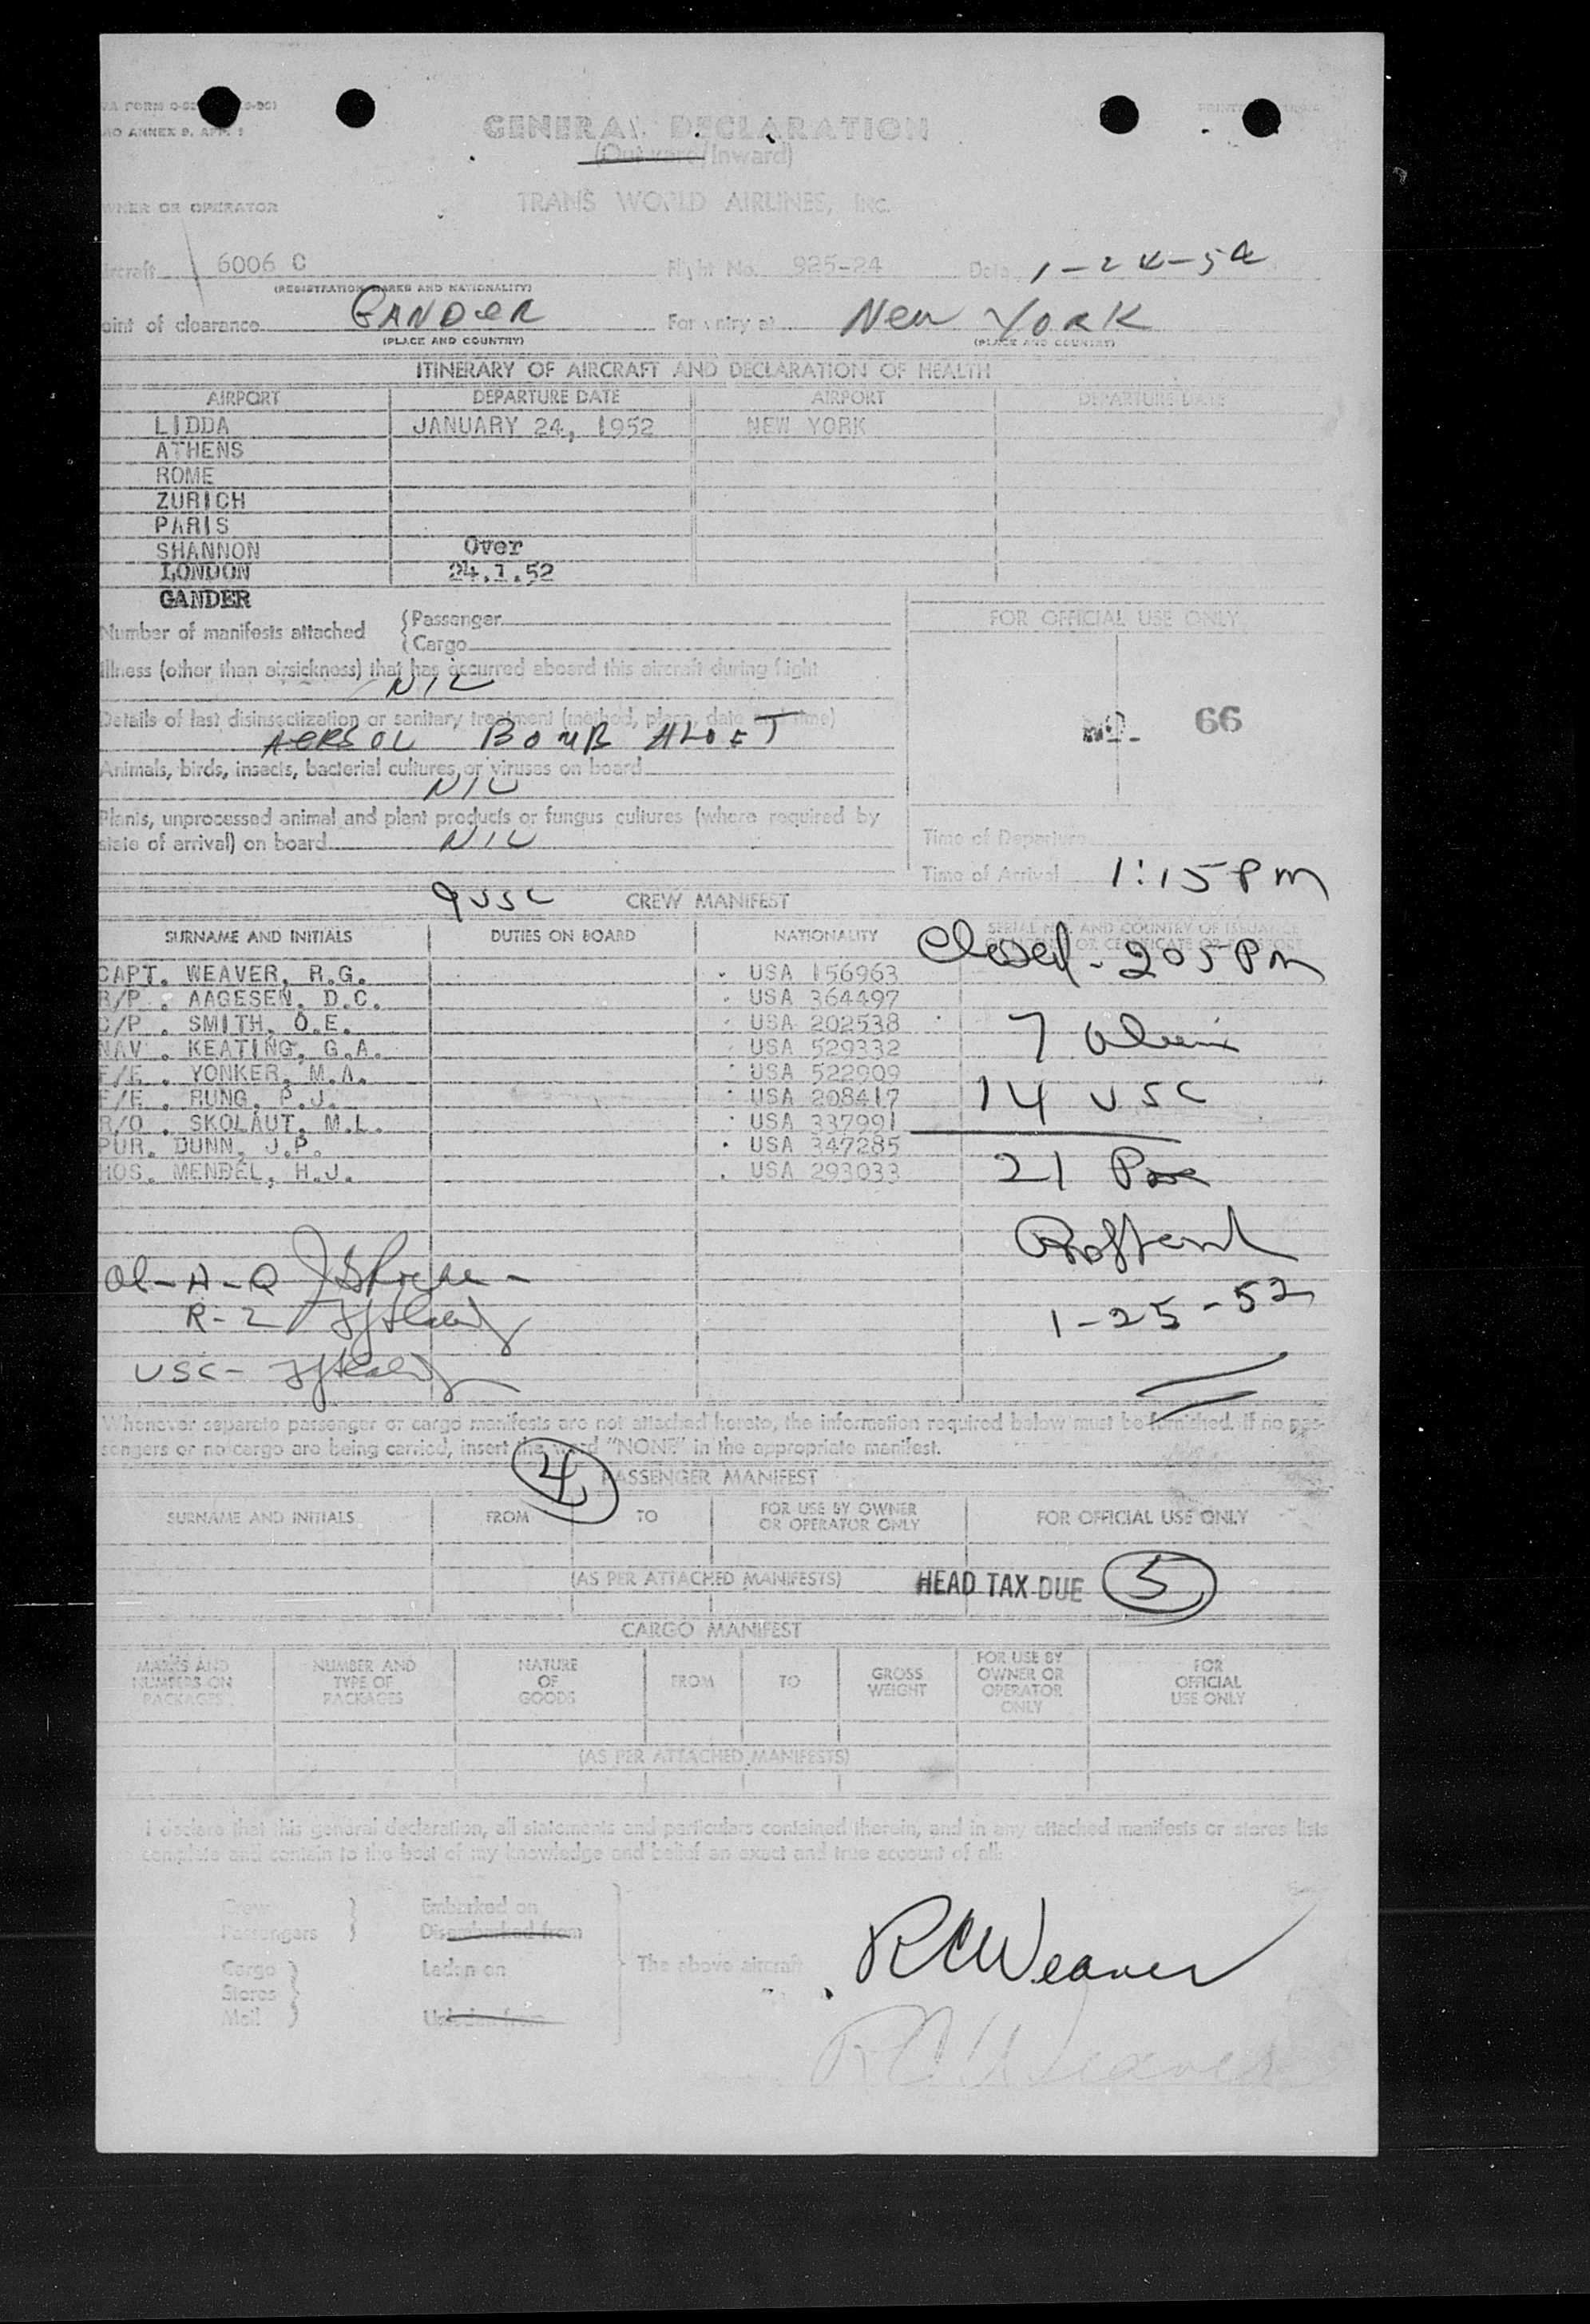 GENERAL DECLARATION
(Outward/Inward)
OWNER OR OPERATOR
TRANS WORLD AIRLINES, Inc.
Aircraft 6006 C Flight No. 925-24 Date 1-24-52
(REGISTRATION MARKS AND NATIONALITY)
Point of clearance GANDER For entry at New York
(PLACE AND COUNTRY) (PLACE AND COUNTRY)
ITINERARY OF AIRCRAFT AND DECLARATION OF HEALTH
AIRPORT DEPARTURE DATE AIRPORT DEPARTURE DATE
LIDDA JANUARY 24, 1952 NEW YORK
ATHENS
ROME
ZURICH
PARIS
SHANNON Over
LONDON 24.1.52
GANDER
Number of manifests attached {Passenger
{Cargo
FOR OFFICIAL USE ONLY
Illness (other than airsickness) that has occurred aboard this aircraft during flight
NIL
Details of last disinsectization or sanitary treatment (method, place, date and time)
AERSOL BOMB ALOFT
66
Animals, birds, insects, bacterial cultures or viruses on board
NIL
Plants, unprocessed animal and plant products or fungus cultures (where required by
state of arrival) on board NIL
Time of Departure
Time of Arrival 1:15 PM
9 USC CREW MANIFEST
SURNAME AND INITIALS DUTIES ON BOARD NATIONALITY
Closed - 205 PM
CAPT. WEAVER, R.G. USA 156963
R/P . AAGESEN, D.C. USA 364497
C/P . SMITH, O.E. USA 202538
NAV . KEATING, G.A. USA 529332
F/E . YONKER, M.A. USA 522909
F/E . RUNG, P.J. USA 208417
R/O . SKOLAUT, M.L. USA 337991
PUR. DUNN, J.P. USA 347285
HOS. MENDEL, H.J. USA 293033
7
14 USC
21
R-2
1-25-52
USC-
Whenever separate passenger or cargo manifests are not attached hereto, the information required below must be furnished. If no pas-
sengers or no cargo are being carried, insert the word "NONE" in the appropriate manifest.
4
PASSENGER MANIFEST
SURNAME AND INITIALS FROM TO FOR USE BY OWNER OR OPERATOR ONLY FOR OFFICIAL USE ONLY
(AS PER ATTACHED MANIFESTS) HEAD TAX DUE 5
CARGO MANIFEST
MARKS AND NUMBERS ON PACKAGES NUMBER AND TYPE OF PACKAGES NATURE OF GOODS FROM TO GROSS WEIGHT FOR USE BY OWNER OR OPERATOR ONLY FOR OFFICIAL USE ONLY
(AS PER ATTACHED MANIFESTS)
I declare that this general declaration, all statements and particulars contained therein, and in any attached manifests or stores lists
complete and contain to the best of my knowledge and belief an exact and true account of all:
Crew Embarked on
Passengers Disembarked from
Cargo Laden on The above aircraft
Stores
Mail Unladen from
R C Weaver
R C Weaver